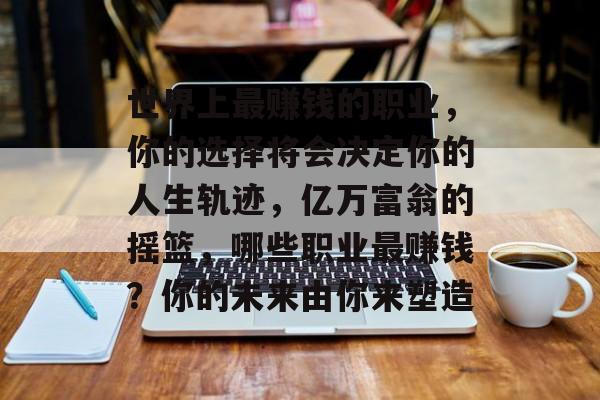 世界上最赚钱的职业，
你的选择将会决定你的
人生轨迹，亿万富翁的
摇篮，哪些职业最赚钱
？你的未来由你来塑造